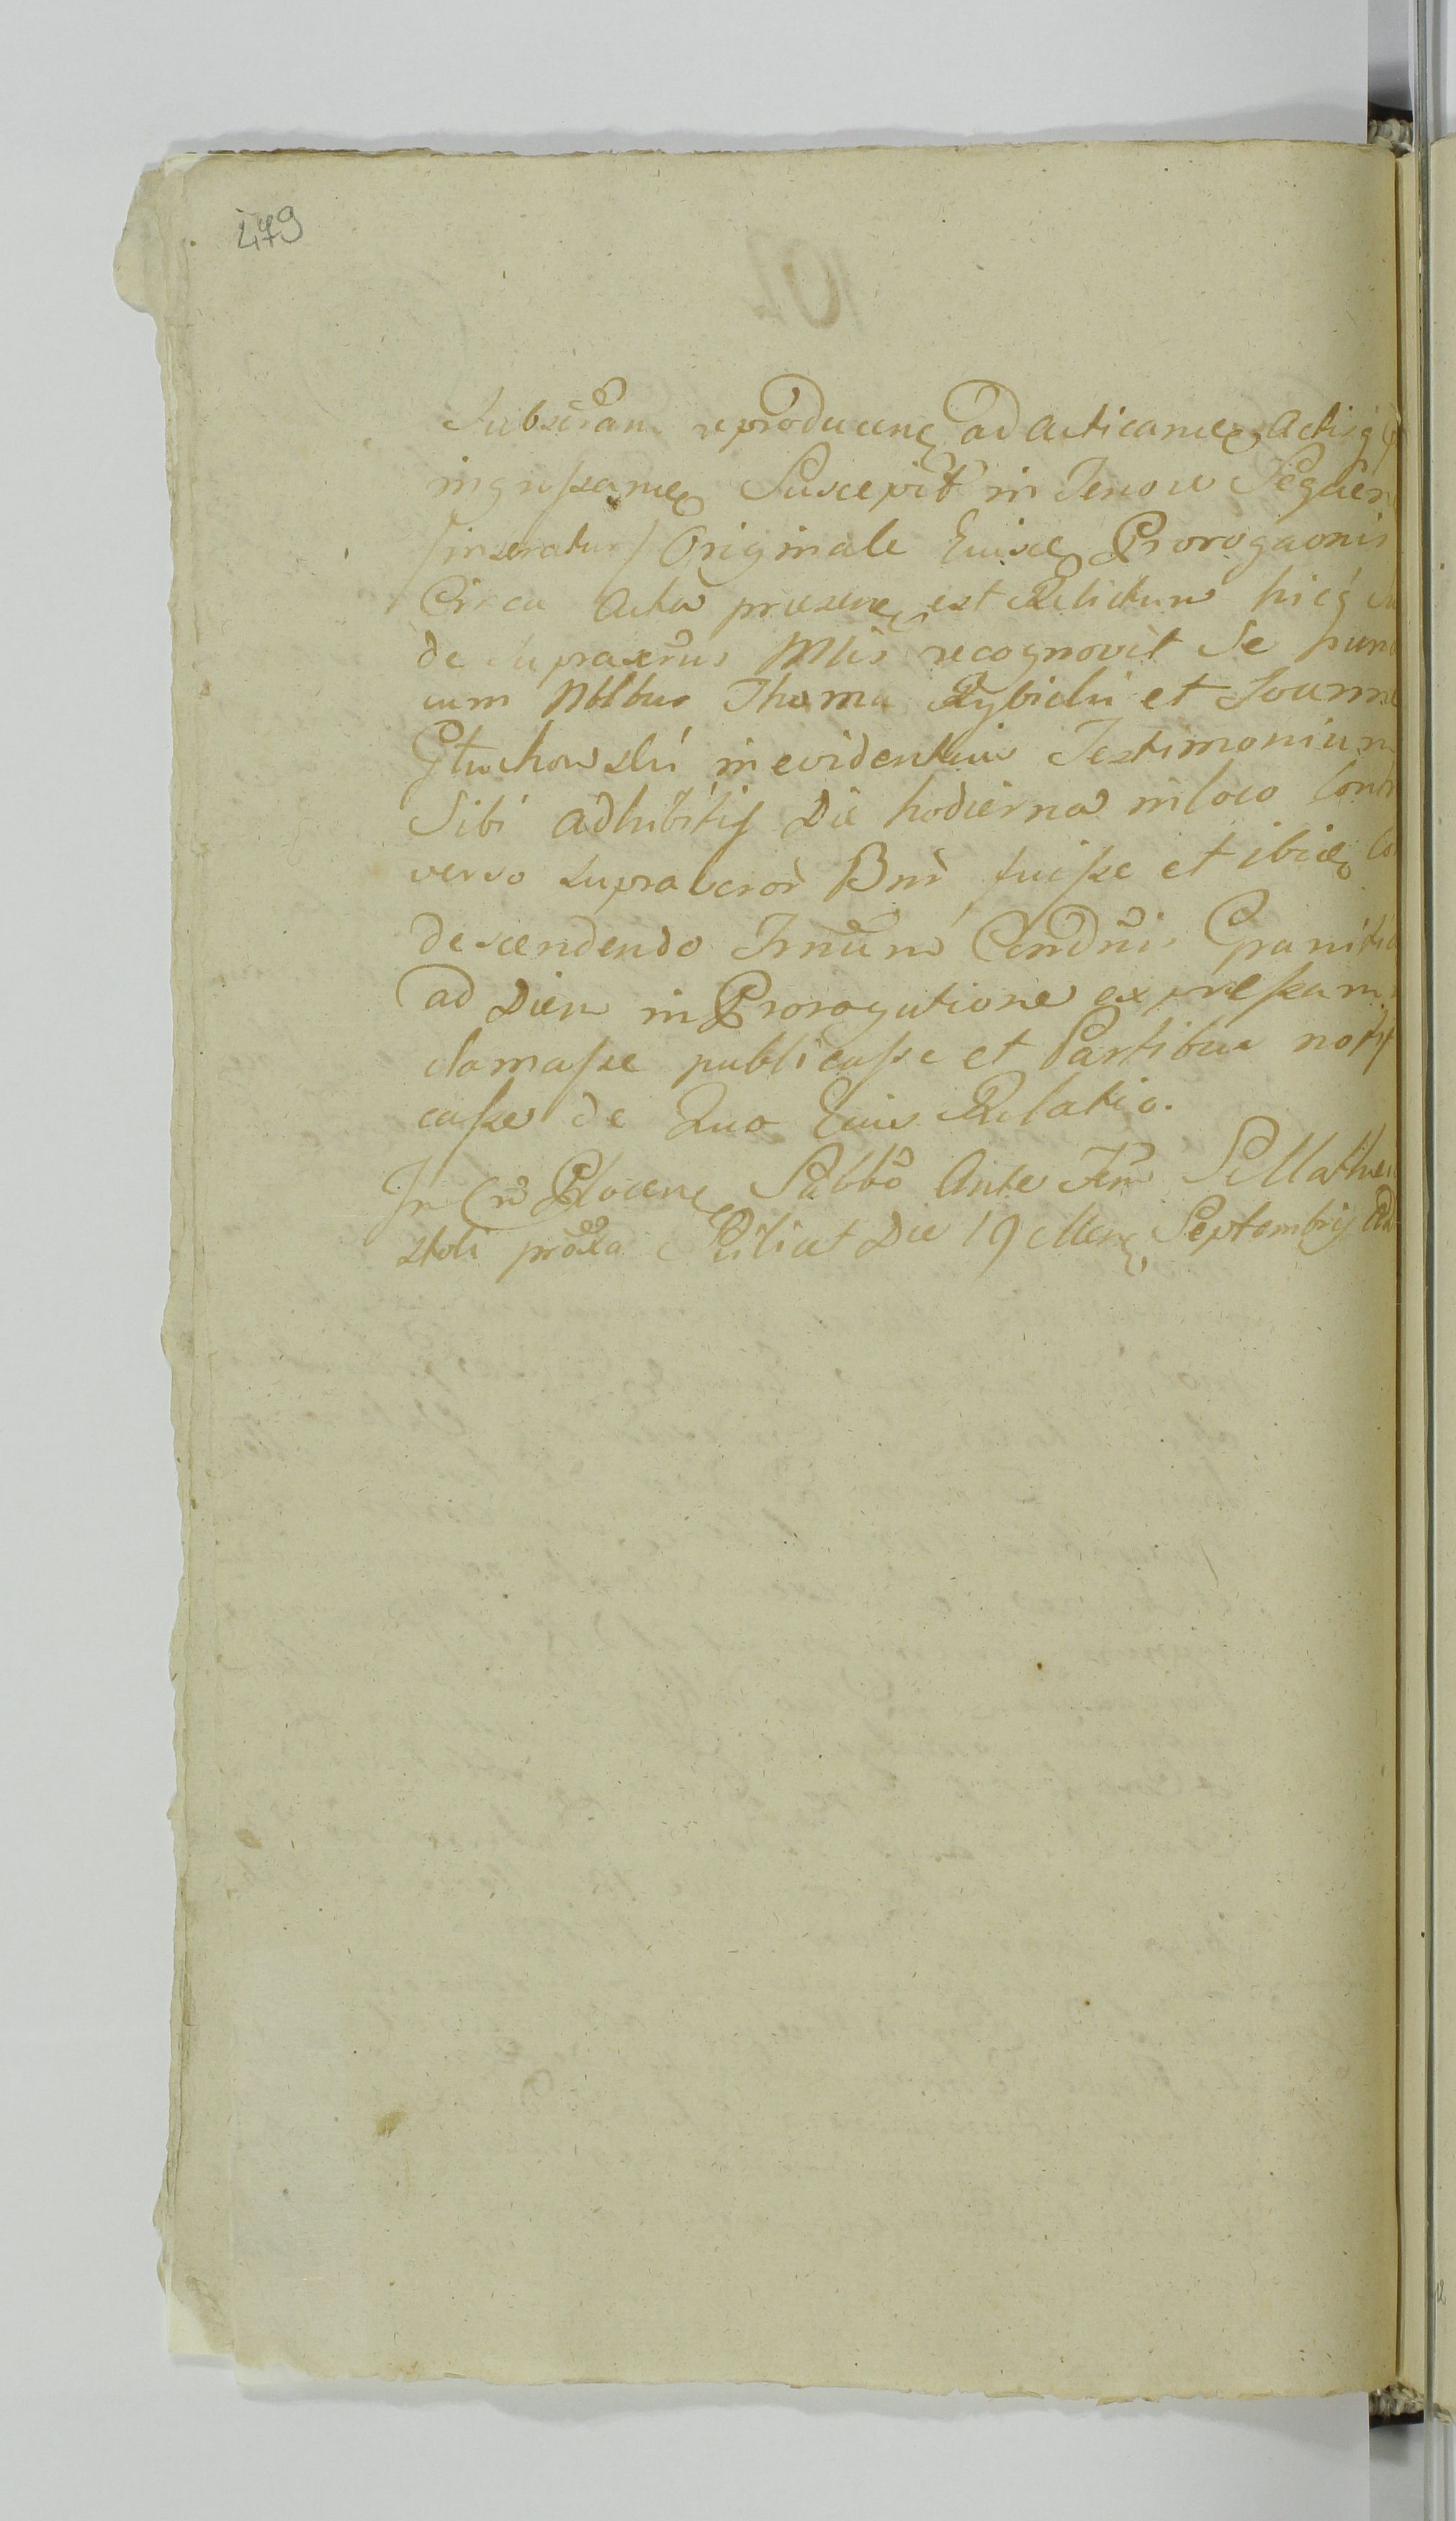 479
Subscrãm reproducenę ad acticandę Actisq
ingrossandę Suscepit in Tenore Sequen
/inseratur/ Originale Eiusdę Prorogaonis
Circa Acta praesenę est Relictum hicq
de Supraxrũs Mlis recognovit Se hunc
cum Nblbus Thoma Rybicki et Joanne
Głuchowski in evidentiam Testimonium
Sibi adhibitis Die hodierna in loco Contr
verso supra bcror Bnr fuisse et ibidę Co
descendendo Trnũm Condnis Graniti
ad Diem in Prorogatione expressam
clamasse publicasse et Partibus notif
casse de Quo Eius Relatio.
In Crõ Plocenę Sabbõ Ante Fem S Mathei
stoli prõxa Scilicet Die 19 Mensę Septembris